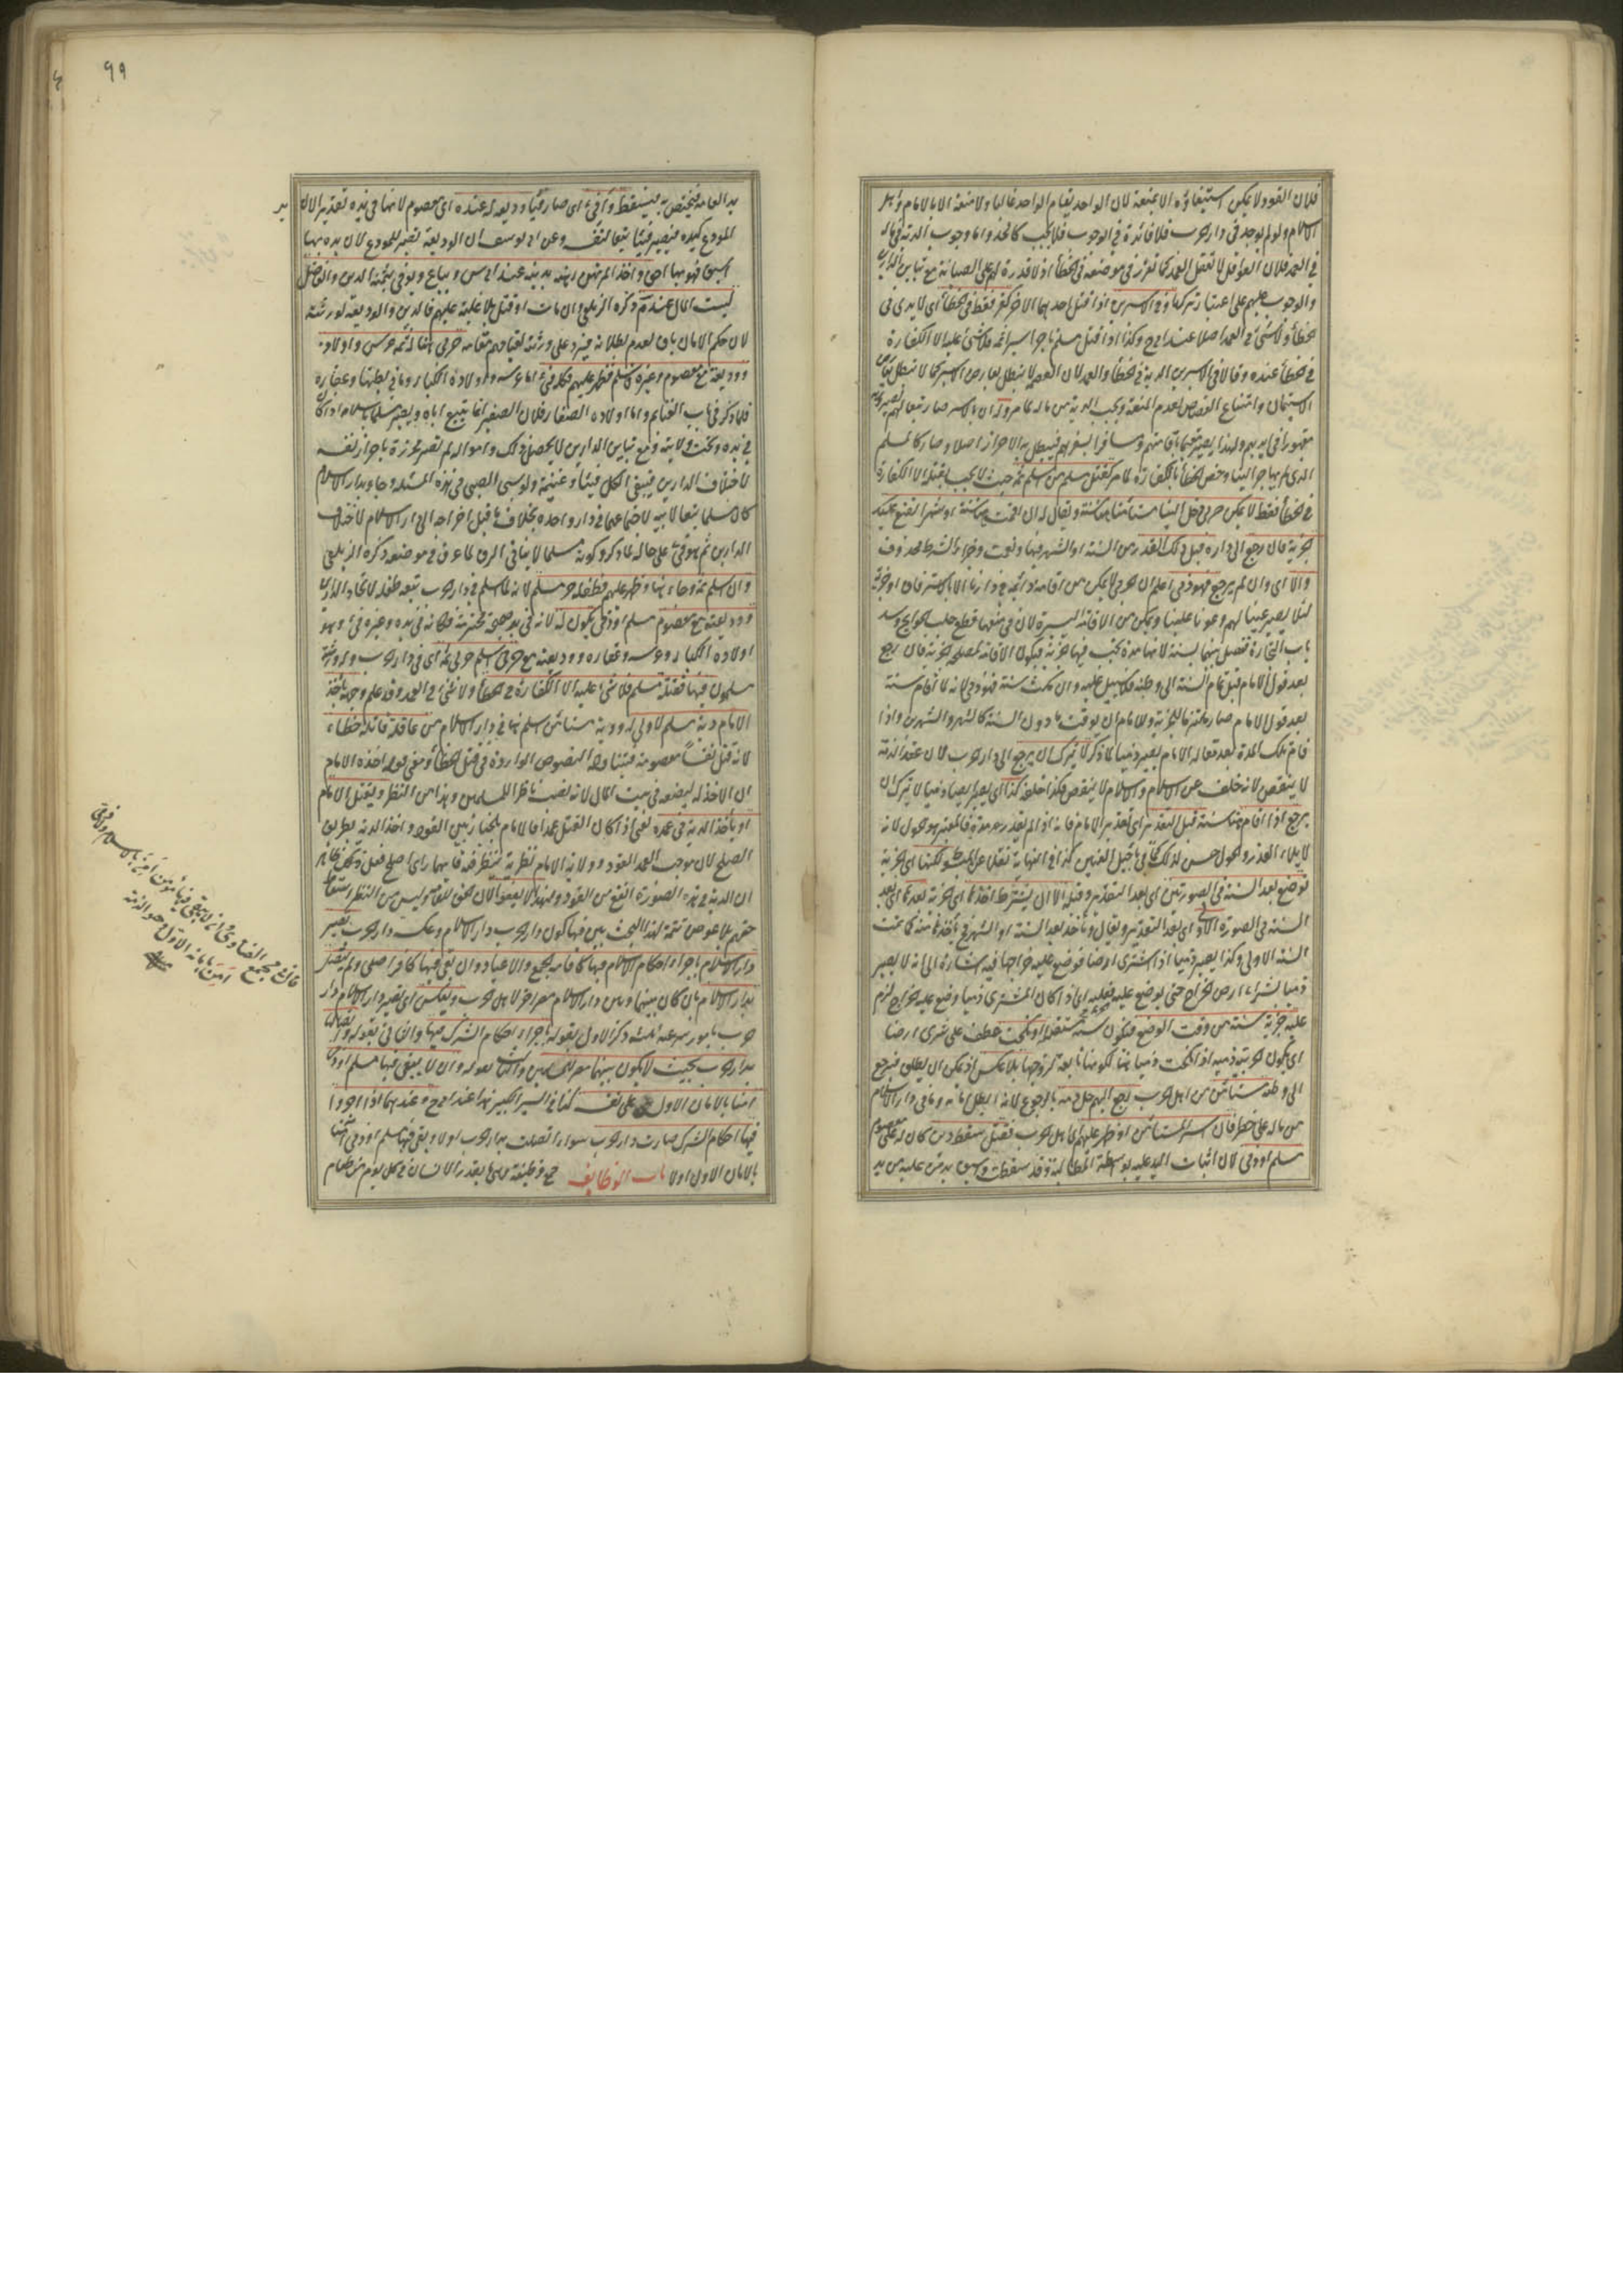 فلان القود لا يمكن استيفاؤه الا بمنعة لان الواحد يقاوم الواحد غالبا ولا منعة الا بالامام واهل
الاسلام ولم يوجد في دار الحرب فلا فائدة في الوجوب فلا يجب كالحد واما وجوب الدية في ماله
في العمد فلان العواقل لا تعقل العمد كما تقرر في موضعه وفي الخطأ اذ لا قدرة لهم على الصيانة مع تباين الدارين
والوجوب عليهم على اعتبار تركها وفي الاسيرين اذا قتل احدهما الآخر كفر فقط في الخطأ اي لا يدي في
الخطأ ولا شيء في العمد اصلا عند ابي ح وكذا اذا قتل مسلم تاجر اسيرا ثمه فلا شيء عليه الا الكفارة
في الخطأ عنده وقالا في الاسيرين الدية في الخطأ والعمد لان العصمة لا تبطل بعارض الاسر كما لا تبطل بعارض
الاستيمان وامتناع القصاص لعدم المنعة ويجب الدية من ماله لما مر وله ان بالاسر صار تبعا لهم لصيرورته
مقهورا في ايديهم ولهذا يصير مقيما باقامتهم ومسافرا بسفرهم فيبطل به الاحراز اصلا وصار كالمسلم
الذي لم يهاجر الينا وخص الخطأ بالكفارة لما مر كقتل مسلم من اسلم ثمه حيث لا يجب بقتله الا الكفارة
في الخطأ فقط لا يمكن حربي دخل الينا مستأمنا سنة ويقال له ان اقمت سنة او شهرا نضع عليك
جزية فان رجع الى داره قبل ذلك القدر من السنة او الشهر فبها ونعمت وجزاء الشرط محذوف
والا اي وان لم يرجع فهو ذمي اعلم ان الحربي لا يمكن من اقامة دائمة في دارنا الا باسترقاق او جزية
لئلا يصير عينا لهم وعونا علينا ويمكن من الاقامة اليسيرة لان في منعها قطع جلب الحوائج وسد
باب التجارة ففصل بينهما بسنة لانها مدة تجب فيها الجزية فيكون الاقامة لمصلحة الجزية فان رجع
بعد قول الامام قبل تمام السنة الى وطنه فلا سبيل عليه وان مكث سنة فهو ذمي لانه لما اقام سنة
بعد قول الامام صار ملتزما للجزية وللامام ان يوقت ما دون السنة كالشهر والشهرين واذا
اقام تلك المدة بعد مقالة الامام يصير ذميا لما ذكر لا يترك ان يرجع الى دار الحرب لان عقد الذمة
لا ينقض لانه خلف عن الاسلام والاسلام لا ينقض فكذا خلفه كذا اي يصير ايضا ذميا لا يترك ان
يرجع اذا اقام هنا سنة قبل التقدير اي تقدير الامام فانه اذا لم يقدر له مدة فالمعتبر هو الحول لانه
لابلاء العذر والحول حسن لذلك كما في تأجيل العنين كذا في النهاية نقلا عن المبسوط ولكنها اي الجزية
توضع بعد السنة في الصورتين اي بعد التقدير وقبله الا ان يشترط اخذها اي الجزية بعدها اي بعد
السنة في الصورة الاولى اي بعد التقدير ويقال وتأخذ بعد السنة او الشهر فيأخذها منه كما تمت
السنة الاولى وكذا يصير ذميا اذا اشترى ارضا فوضع عليه خراجها فيه اشارة الى انه لا يصير
ذميا بشراء ارض الخراج حتى يوضع عليه فعليه اي اذا كان المشتري ذميا وضع عليه الخراج لزم
عليه جزية سنة من وقت الوضع فتكون سنة مستقبلة او نكحت عطف على شرى ارضا
اي تكون الحربية ذمية اذا نكحت ذميا هنا لكونها تابعة لزوجها بلا عكس اذ يمكن ان يطلق فيرجع
الى وطنه مستأمن من اهل الحرب رجع اليهم حل دمه بالرجوع لانه ابطل امانه وما في دار الاسلام
من ماله على خطر فان اسر المستأمن او ظهر عليهم اي اهل الحرب فقتل سقط دين كان له على معصوم
مسلم او ذمي لان اثبات اليد عليه بواسطة المطالبة وقد سقطت وسبق يد من عليه من يد
٩٩
يد العامة فيختص به فيسقط وافيء اي صار فيئا وديعة له عنده اي معصوم لانها في يده تقديرا لان يد
المودع كيده فيصير فيئا تبعا لنفسه وعن ابي يوسف ان الوديعة تصير للمودع لان يده بها
اسبق فهو بها احق واخذ المرتهن رهنه بدينه عند ابي س ويباع ويوفى بثمنه الدين والفاضل
لبيت المال عند م ذكره الزيلعي وان مات او قتل بلا غلبة عليهم فالدين والوديعة لورثته
لان حكم الامان باق لعدم بطلانه فيرد على ورثته لقيامهم مقامه حربي هنا له ثمه عرس واولاد
ووديعة مع معصوم وغيره فاسلم فظهر عليهم فكله فيء اما عرسه واولاده الكبار وما في بطنها وعقاره
فلما ذكر في باب الغنائم واما اولاده الصغار فلان الصغير انما يتبع اباه ويصير مسلما باسلامه اذا كان
في يده وتحت ولايته ومع تباين الدارين لا يحصل ذلك وامواله لم تصر محرزة باحراز نفسه
لاختلاف الدارين فيبقى الكل فيئا وغنيمة ولو سبي الصبي في هذه المسئلة وجاء بدار الاسلام
كان مسلما تبعا لابيه لاجتماعهما في دار واحدة بخلاف ما قبل اخراجه الى دار الاسلام لاختلاف
الدارين ثم هو فيء على حاله لما ذكر وكونه مسلما لا ينافي الرق لما عرف في موضعه ذكره الزيلعي
وان اسلم ثمه وجاء هنا وظهر عليهم فطفله حر مسلم لانه لما اسلم في دار الحرب تبعه طفله لاتحاد الدارين
ووديعته مع معصوم مسلم او ذمي تكون له لانه في يد صحيحة محترمة فكأنه في يده وغيره فيء وهو
اولاده الكبار وعرسه وعقاره ووديعته مع حربي اسلم حربي ثمه اي في دار الحرب وله ورثة
مسلمون فيها فقتله مسلم فلا شيء عليه الا الكفارة في الخطأ ولا شيء في العمد وقد علم وجهه يأخذ
الامام دية مسلم لا ولي له ودية مستأمن اسلم هنا في دار الاسلام من عاقلة قاتله خطاء
لانه قتل نفسا معصومة فيتناوله النصوص الواردة في قتل الخطأ ومعنى قوله اخذه الامام
ان الاخذ له ليضعه في بيت المال لانه نصب ناظرا للمسلمين وهذا من النظر ويقتل الامام
او يأخذ الدية في عمده يعني اذا كان القتل عمدا فالامام بالخيار بين القود واخذ الدية بطريق
الصلح لان موجب العمد القود وولاية الامام نظرية ينظر فيه فايهما رأى اصلح فعل وكان ظاهر
ان الدية في هذه الصورة انفع من القود ولهذا لا يعفو لان الحق للعامة وليس من النظر اسقاط
حقهم بلا عوض تتمة لهذا البحث يبين فيها كون دار الحرب دار الاسلام وعكسه دار الحرب تصير
دار الاسلام باجراء احكام الاسلام فيها كاقامة الجمع والاعياد وان بقي فيها كافر اصلي ولم يتصل
بدار الاسلام بان كان بينها وبين دار الاسلام مصر آخر لاهل الحرب وبعكس اي تصير دار الاسلام دار
حرب بامور ثلثة ذكر الاول بقوله باجراء احكام الشرك فيها والثاني بقوله واتصالها
بدار الحرب بحيث لا يكون بينهما مصر للمسلمين والثالث بقوله وان لا يبقى فيها مسلم او ذمي
آمنا بالامان الاول على نفسه كذا في السير الكبير هذا عند ابي ح وعندهما اذا اجروا
فيها احكام الشرك صارت دار الحرب سواء اتصلت بدار الحرب او لا وبقي فيها مسلم او ذمي آمنا
بالامان الاول او لا باب الوظائف جمع وظيفة وهي ما يقدر للانسان في كل يوم من طعام